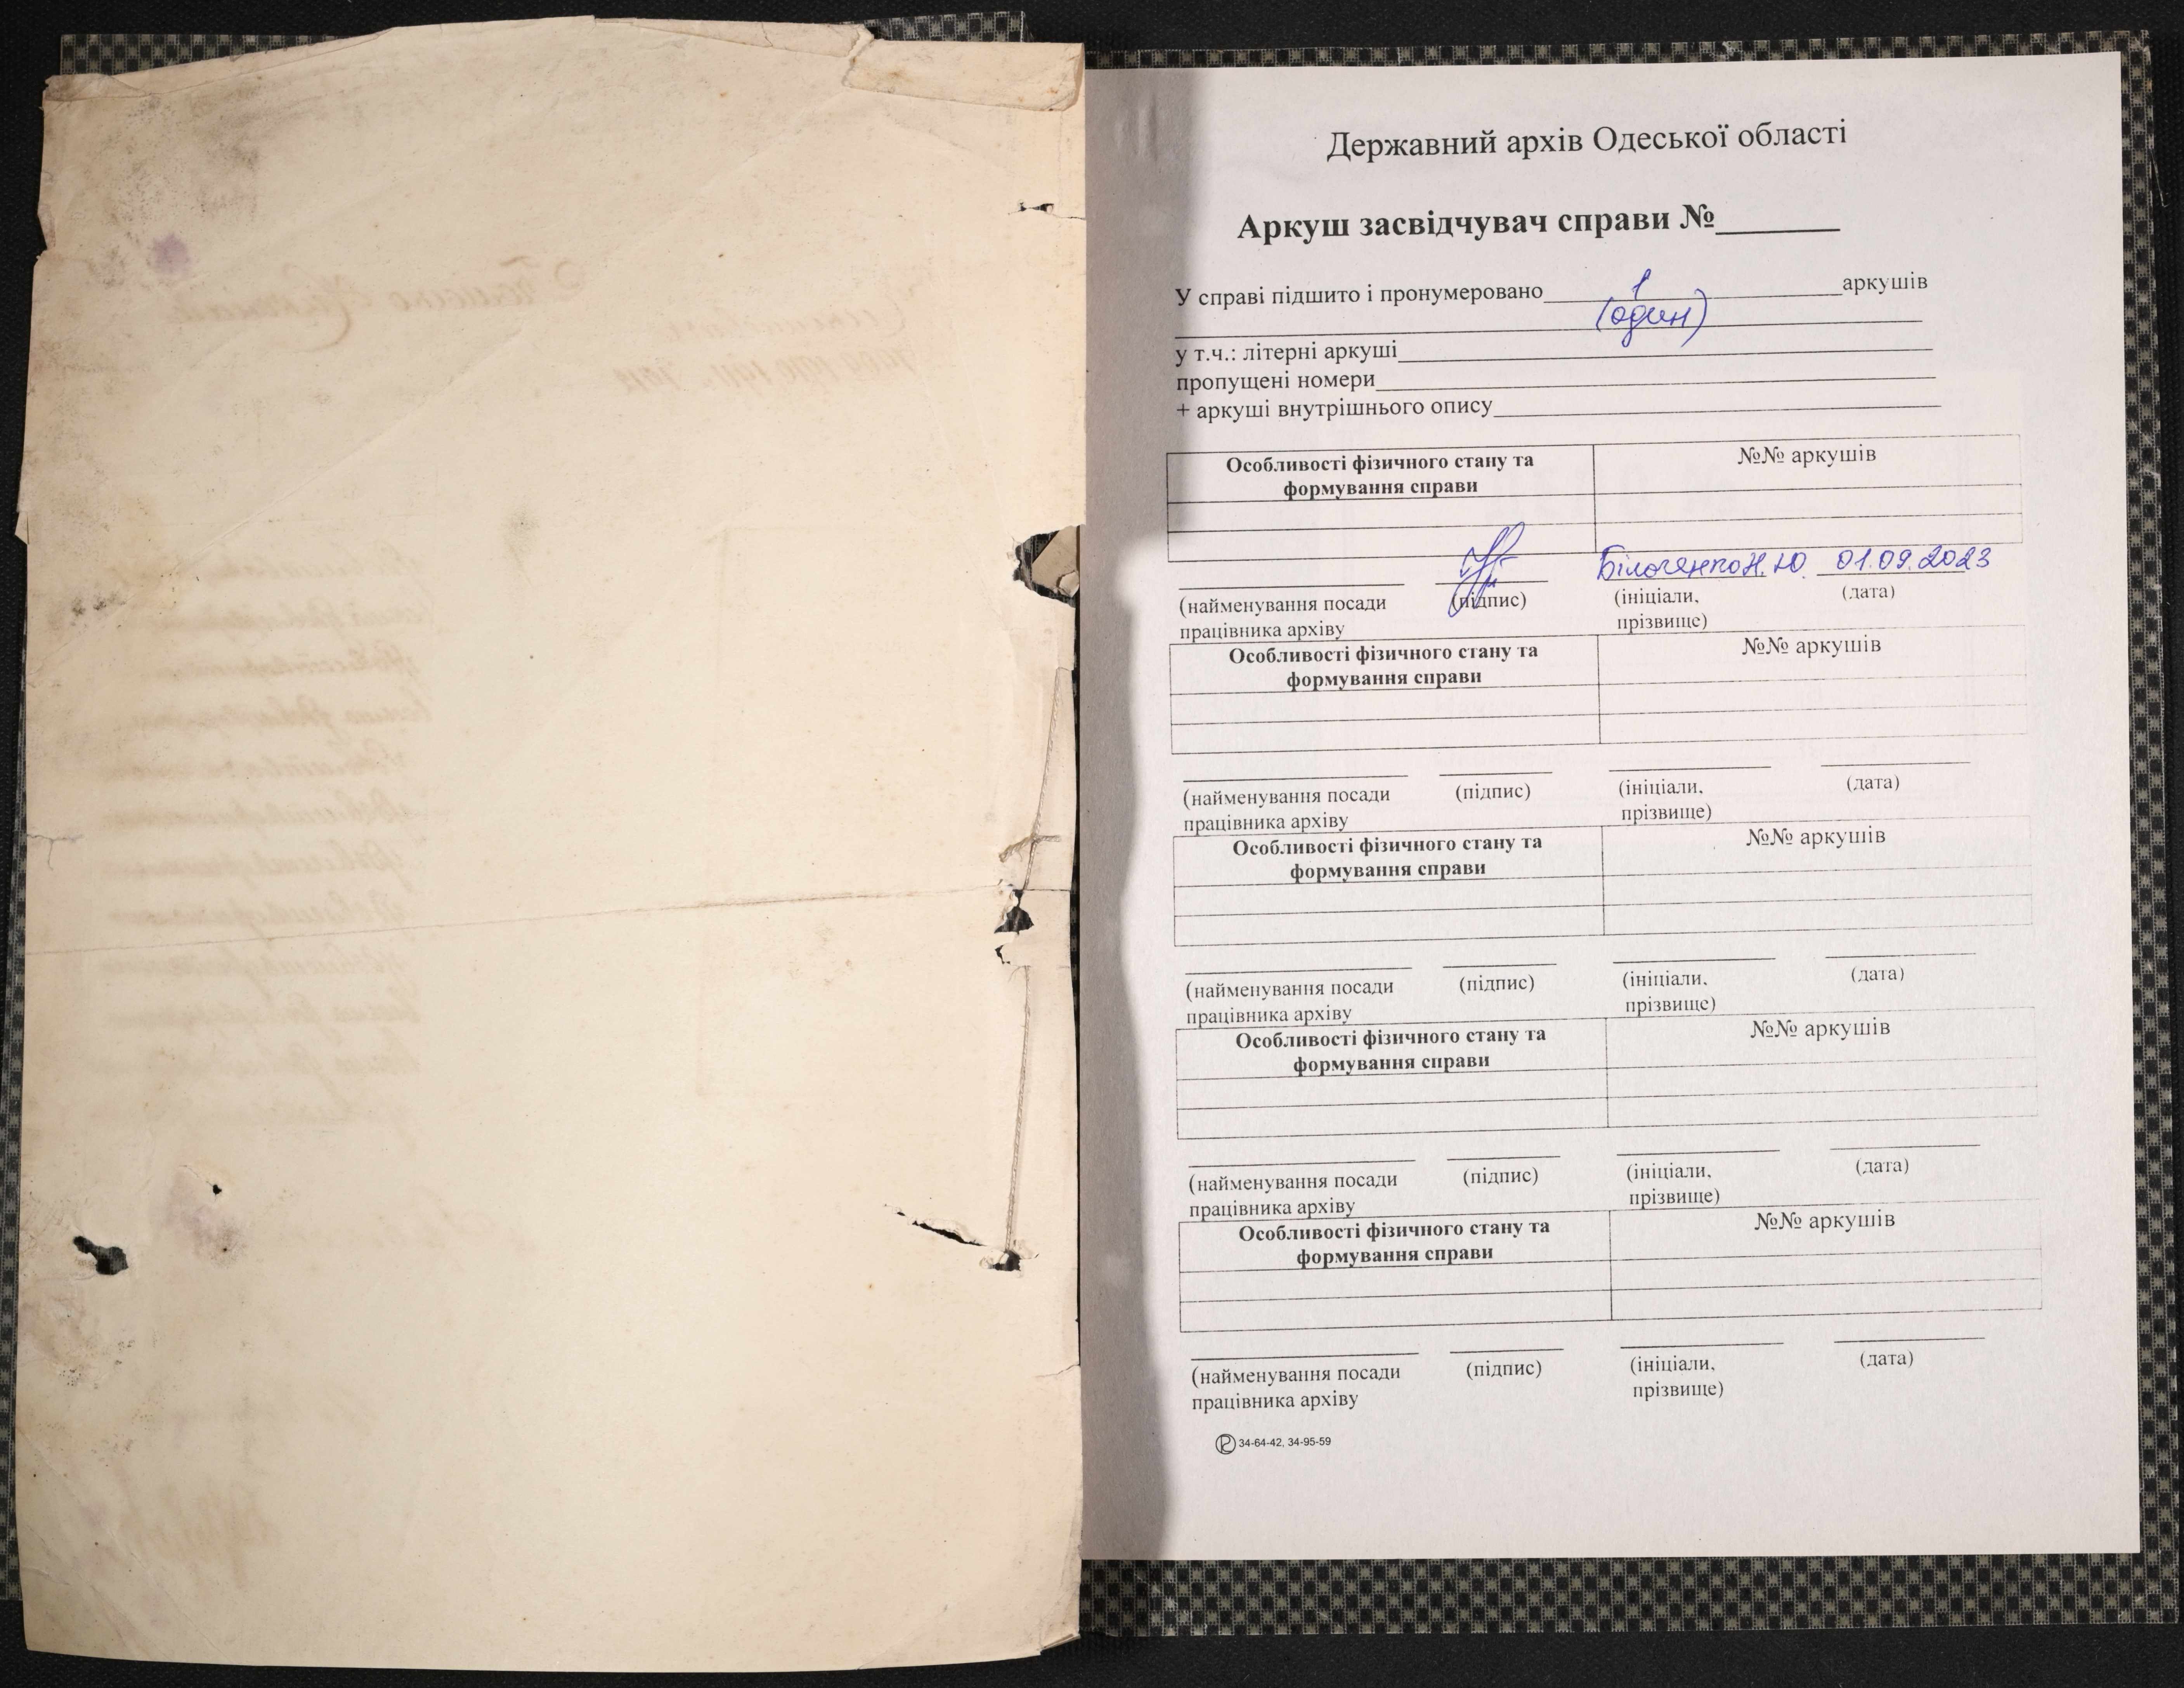 Державний архів Одеської області
Аркуш засвідчувач справи №
У справі підшито і пронумеровано 1 аркушів
(один)
у т.ч.: літерні аркуші
пропущені номери
+ аркуші внутрішнього опису
Особливості фізичного стану та формування справи №№ аркушів
Н.Ю. 01.09.2023
(найменування посади працівника архіву (підпис) (ініціали, прізвище) (дата)
Особливості фізичного стану та формування справи №№ аркушів
(найменування посади працівника архіву (підпис) (ініціали, прізвище) (дата)
Особливості фізичного стану та формування справи №№ аркушів
(найменування посади працівника архіву (підпис) (ініціали, прізвище) (дата)
Особливості фізичного стану та формування справи №№ аркушів
(найменування посади працівника архіву (підпис) (ініціали, прізвище) (дата)
Особливості фізичного стану та формування справи №№ аркушів
(найменування посади працівника архіву (підпис) (ініціали, прізвище) (дата)
34-64-42, 34-95-59